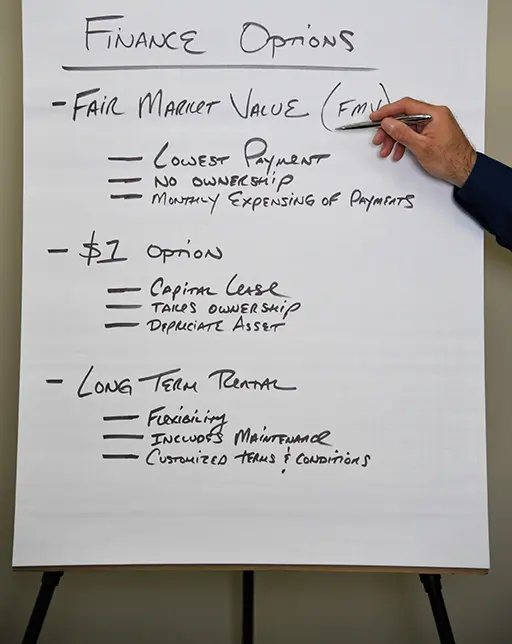 Finance Options
- Fair Market Value (FMV)
— Lowest Payment
— No Ownership
— Monthly Expensing of Payments
- $1 Option
— Capital Lease
— Takes Ownership
— Depreciate Asset
- Long Term Rental
— Flexibility
— Includes Maintenance
— Customized Terms & Conditions